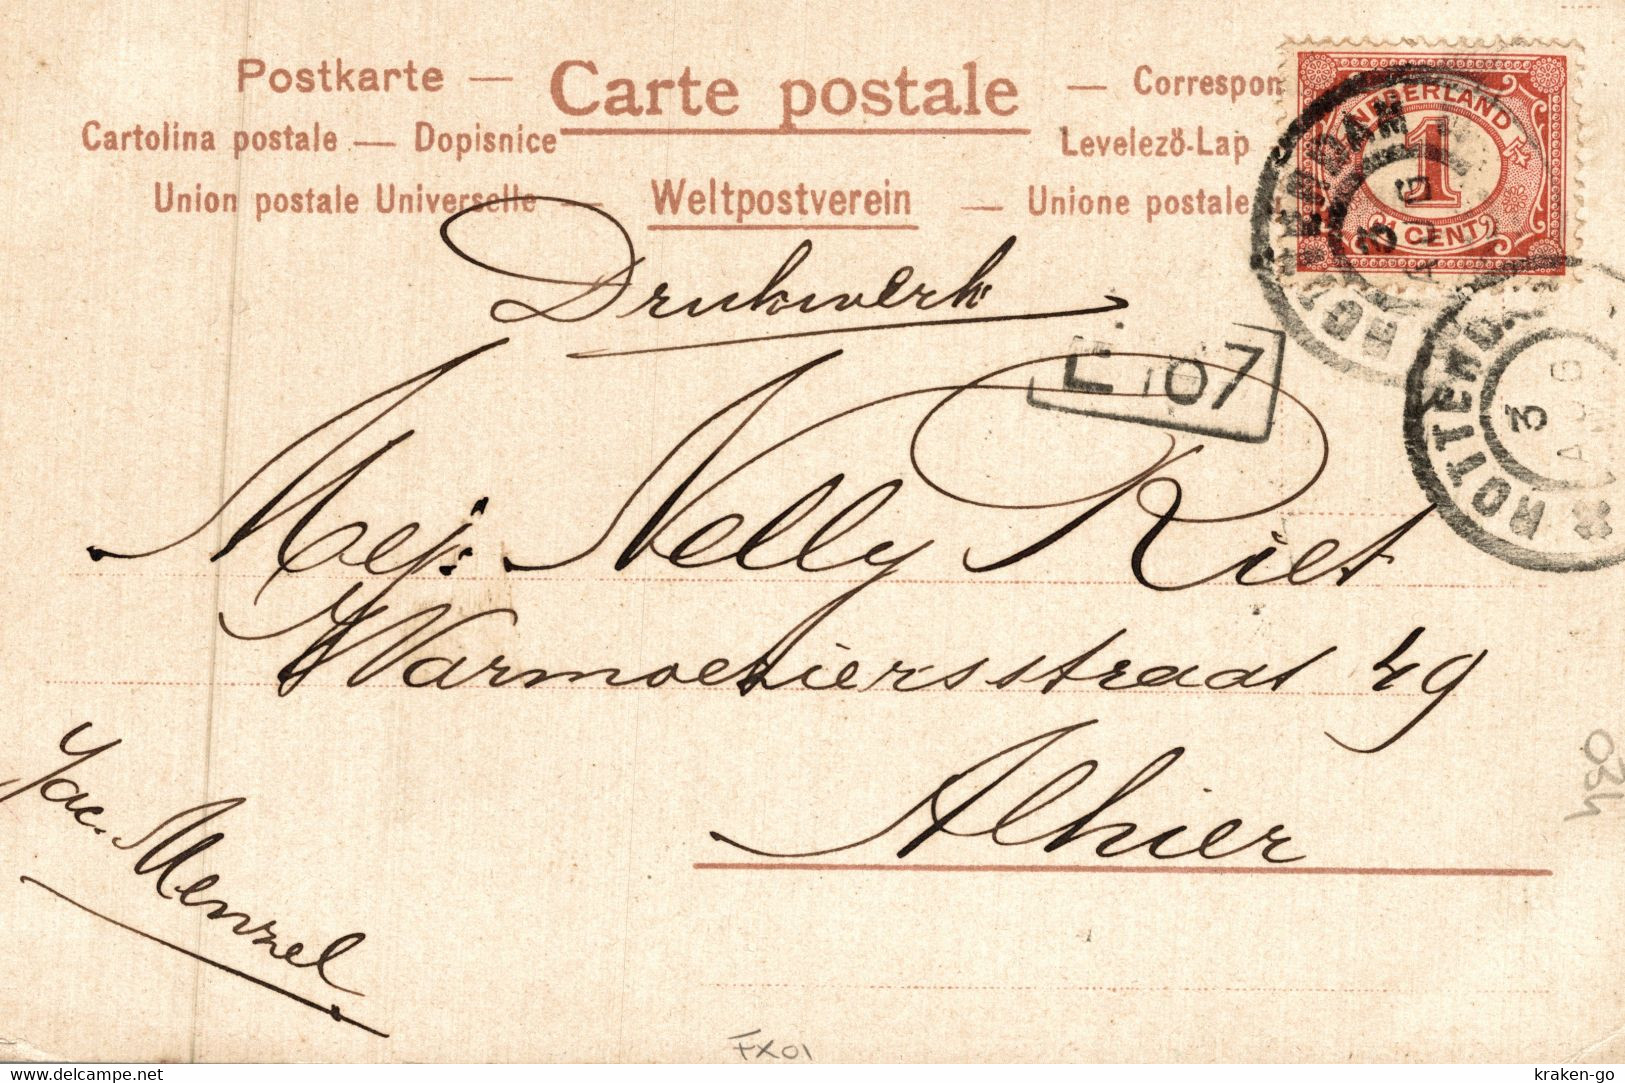 Postkarte — Carte postale — Correspon
Cartolina postale — Dopisnice Levelező-Lap
Union postale Universelle — Weltpostverein — Unione postale
NEDERLAND
1
CENT
ROTTERDAM
3
ROTTERDAM
3
AUG
Drukwerk
67
Mej: Nelly Riet
Warmoeziersstraat 49
Alhier
Jac. Menzel
034
FX01
www.delcampe.net
kraken-go